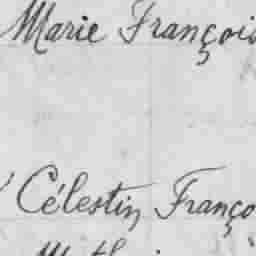 Marie François
Célestin Franço